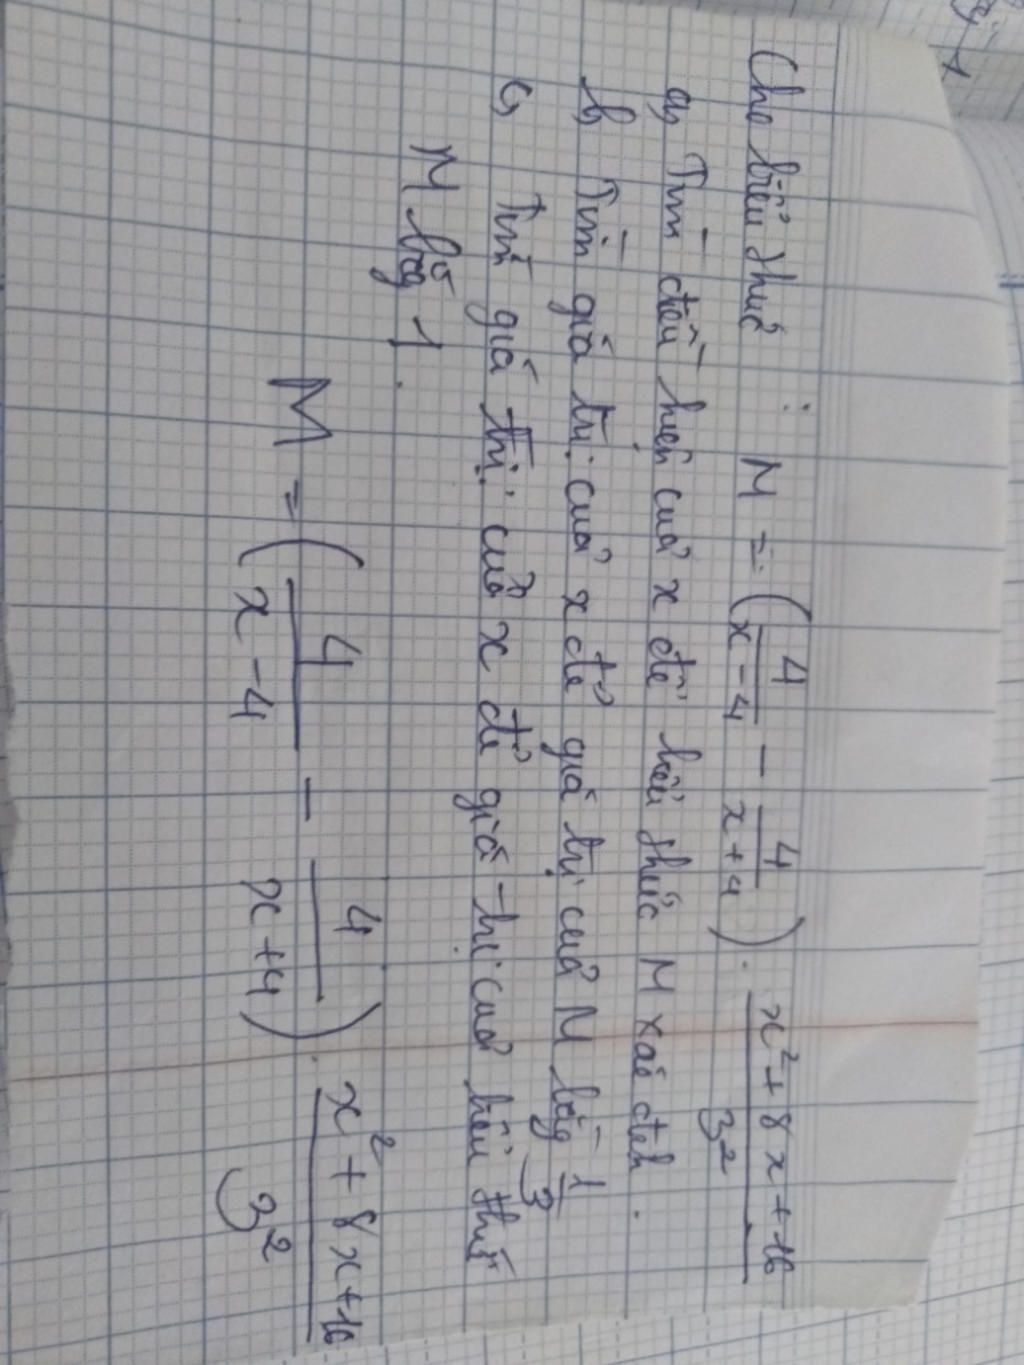 Cho biểu thức : M = (4/(x-4) - 4/(x+4)) . (x²+8x+16)/3²
a, Tìm điều hiện của x để biểu thức M xác định.
b, Tìm giá trị của x để giá trị của M bằng 1/3
c, Tìm giá trị của x để giá trị của biểu thức
M bằng 1.
M = (4/(x-4) - 4/(x+4)) . (x²+8x+16)/3²